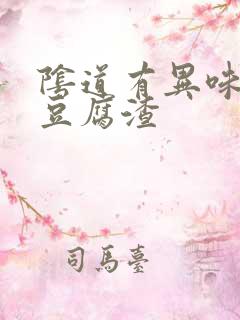 陰道有異味
豆腐渣
司馬臺